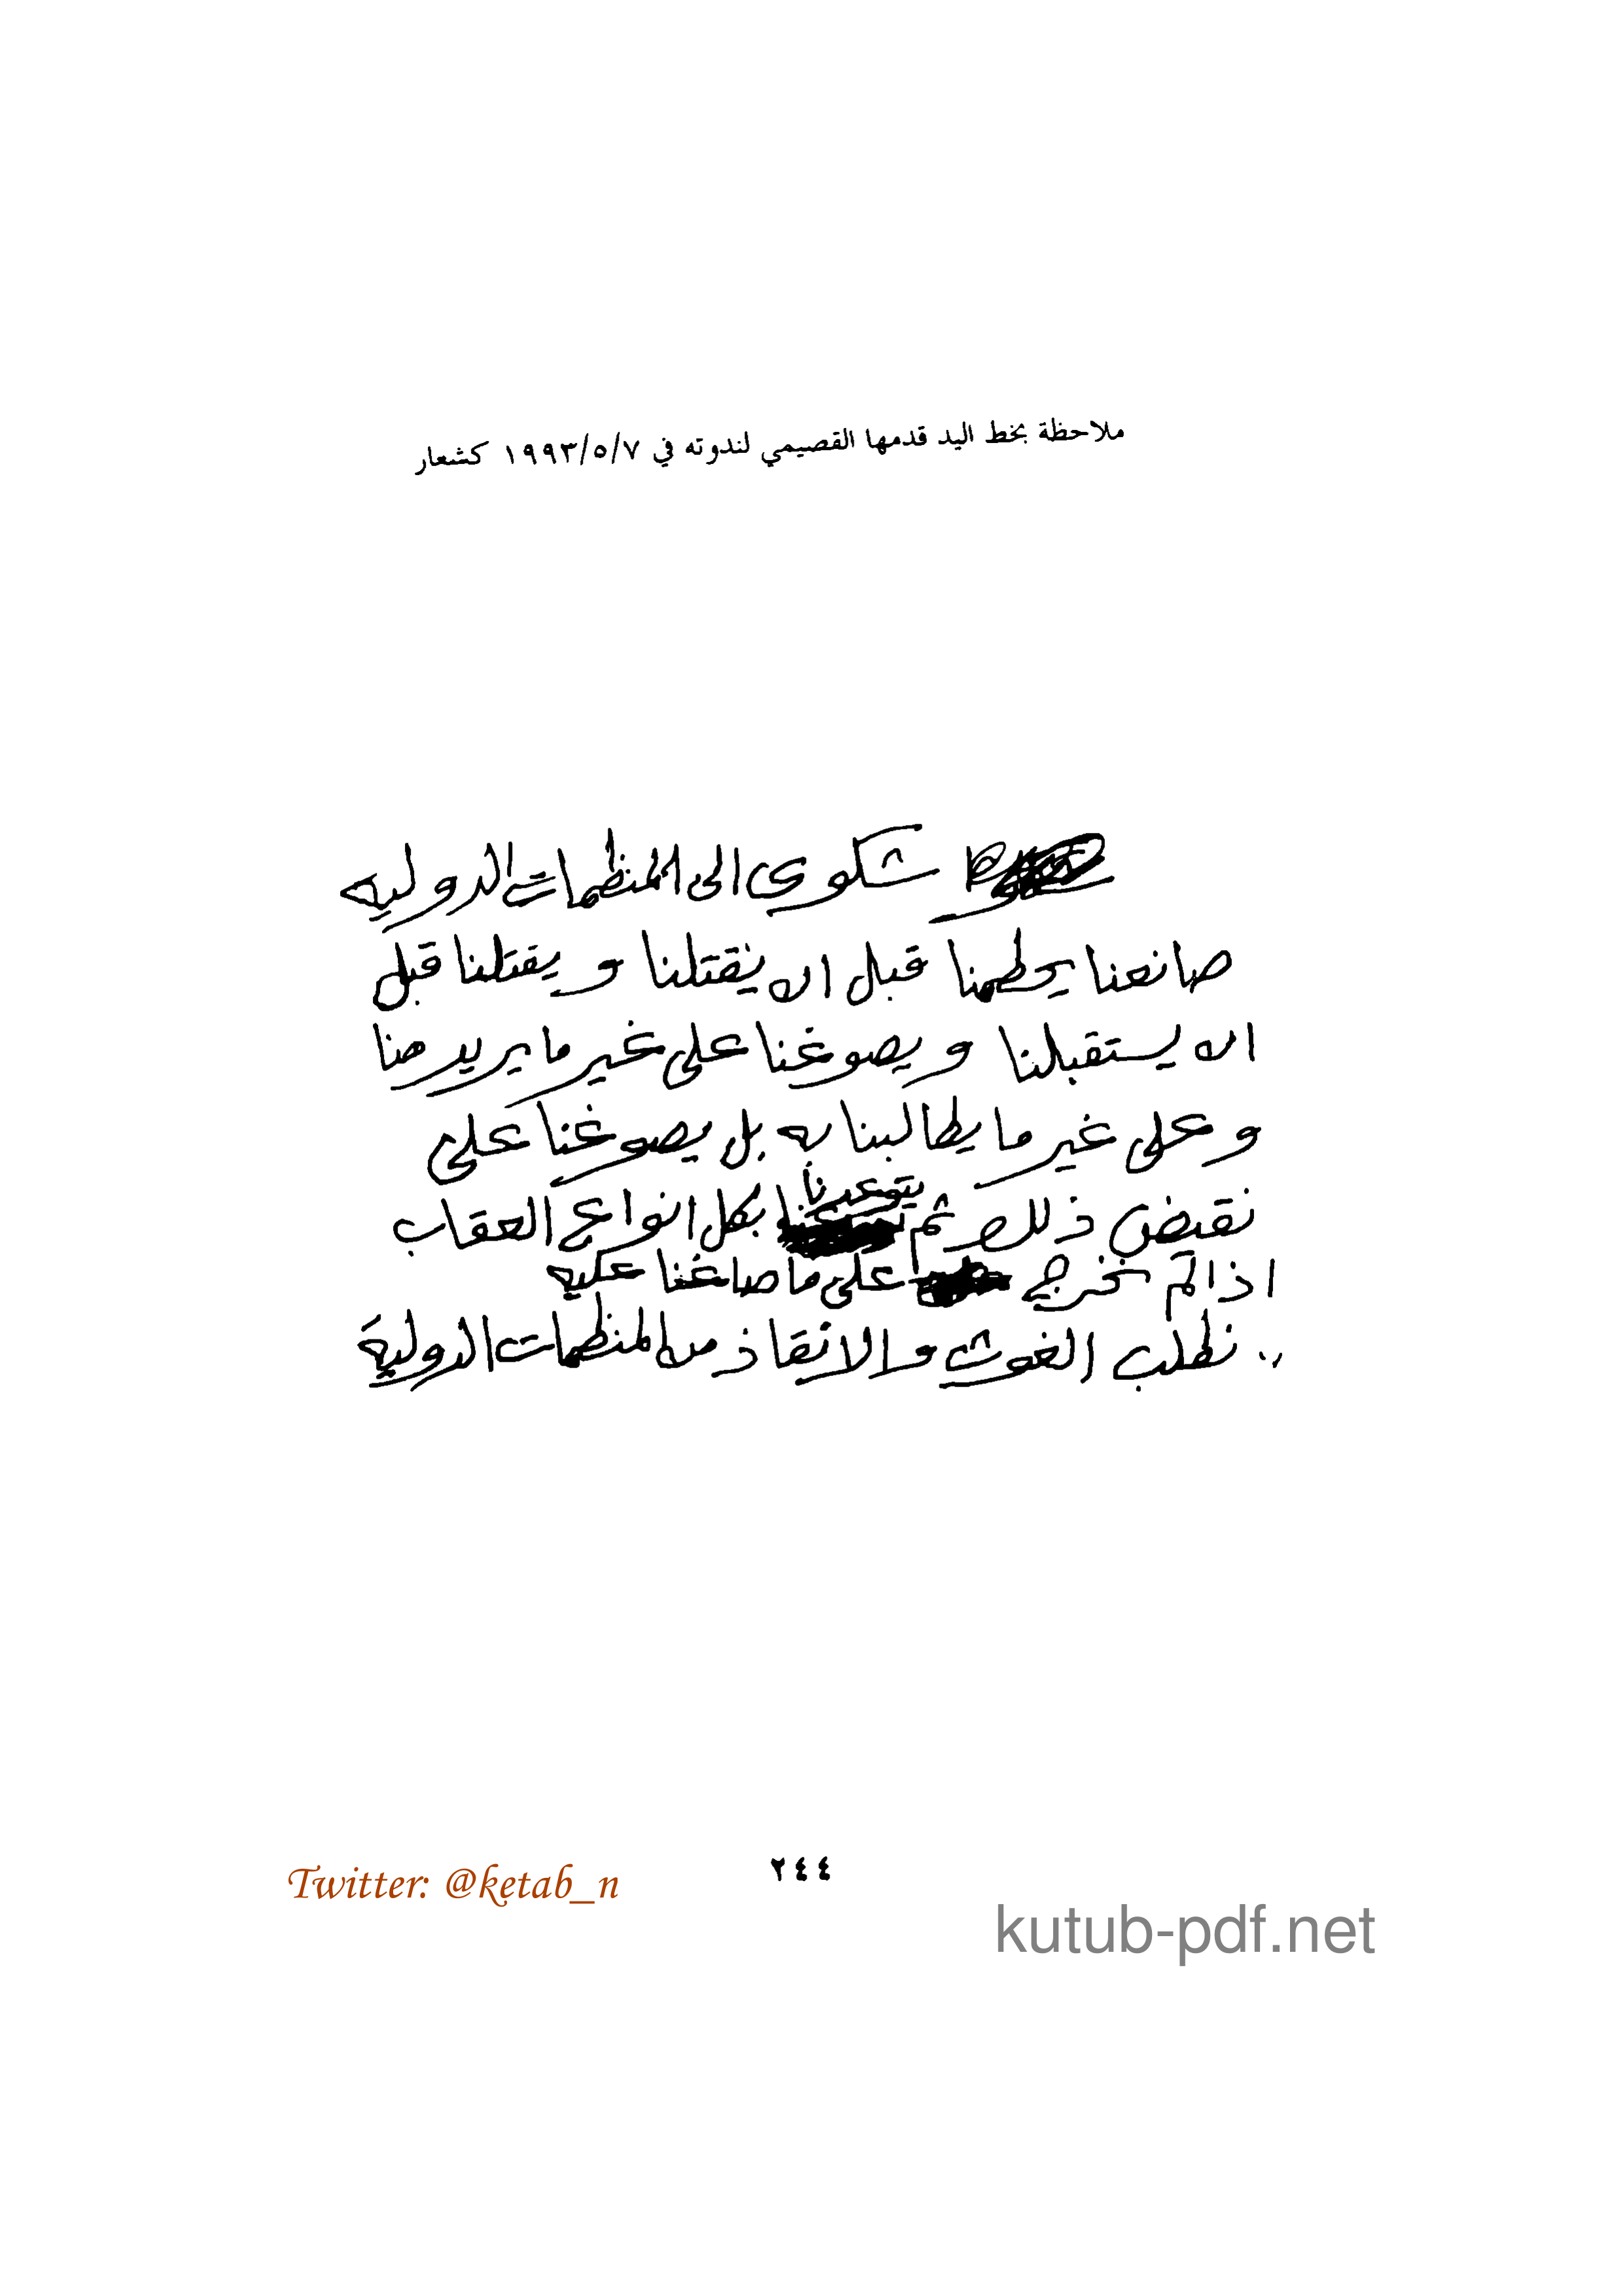 ملاحظة بخط اليد قدمها القصيمي لندوته في ١٩٩٣/٥/٧ كشعار
شكوى الى المنظمات الدوليه
صانعنا يحطمنا قبل ان يقتلنا و يقتلنا قبل
ان يستقبلنا و يصوغنا على غير ما يريد منا
و على غير ما يطالبنا به بل يصوغنا على
نقيض ذلك ثم يتوعدنا بكل انواع العقاب
اذا لم نخرج على ما صاغنا عليه
.. نطلب الغوث والانقاذ من المنظمات الدولية
٢٤٤
Twitter: @ketab_n
kutub-pdf.net